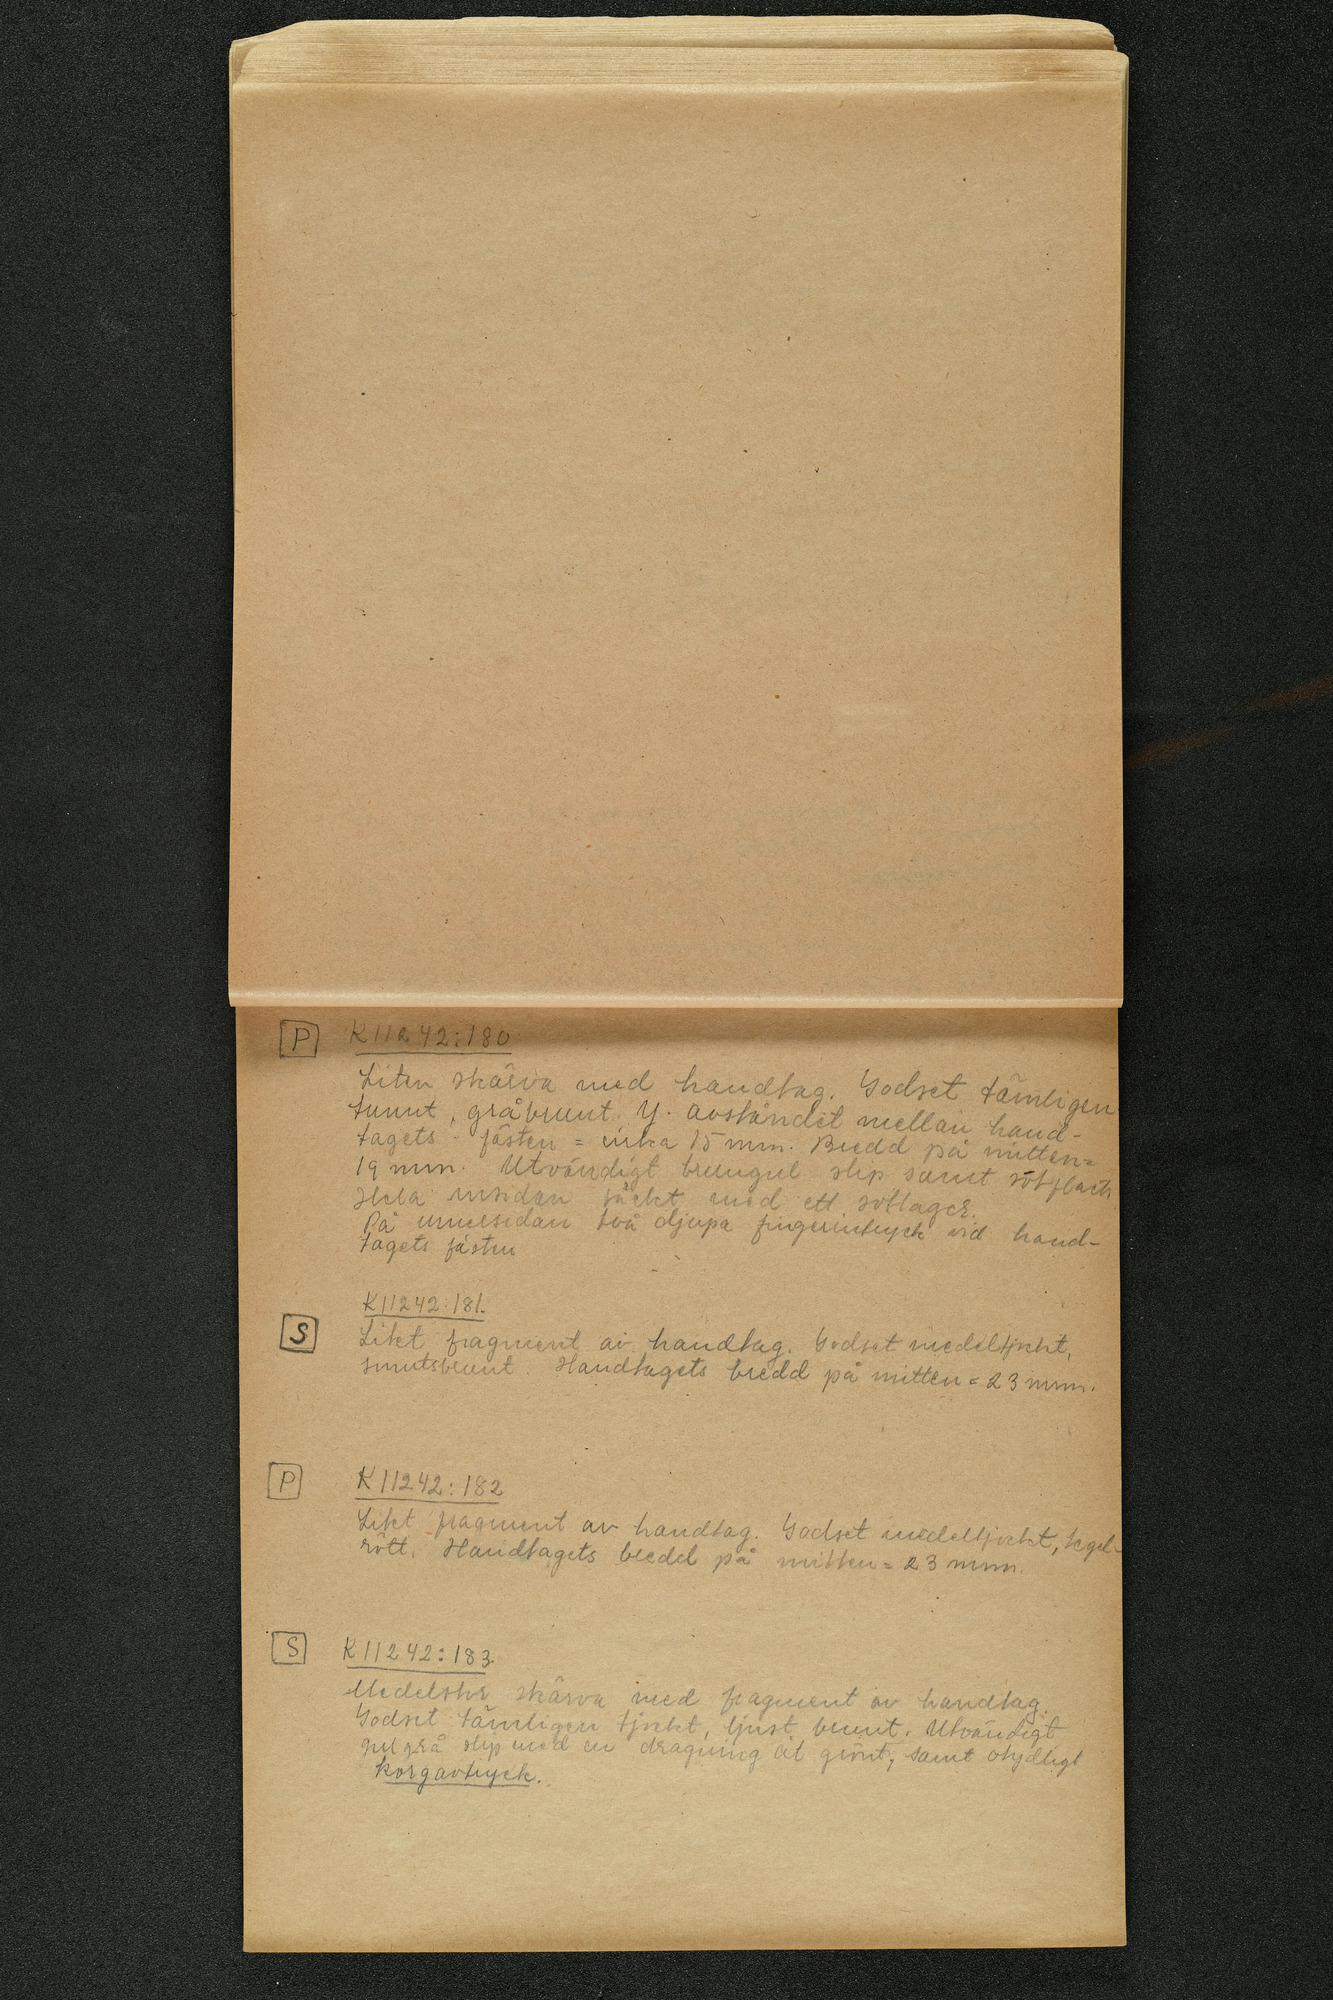 P K11242:180
Liten skärva med handtag. Godset tämligen
tunnt, gråbrunt. Y. avståndet mellan hand-
tagets fästen = cirka 15 mm. Bredd på mitten=
19 mm. Utvändigt brungul slip samt sotfläck
Hela insidan täckt med ett sotlager.
På undersidan två djupa fingerintryck vid hand-
tagets fästen
K11242:181.
S Litet fragment av handtag. Godset medeltjockt,
smutsbrunt. Handtagets bredd på mitten = 23 mm.
P K11242:182
Litet fragment av handtag. Godset medeltjockt, tegel-
rött. Handtagets bredd på mitten = 23 mm.
S K11242:183
Medelstor skärva med fragment av handtag.
Godset tämligen tjockt, ljust brunt. Utvändigt
gulgrå slip med en dragning åt grönt, samt otydligt
korgavtryck.